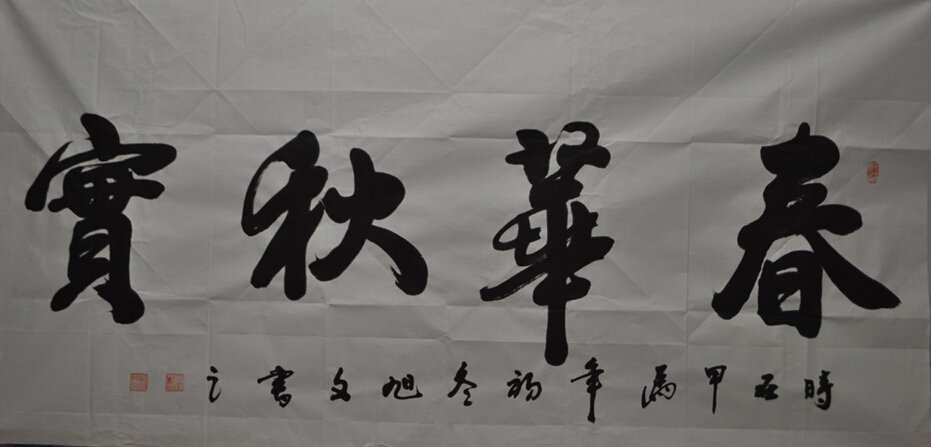 春華秋實
時在甲年初冬旭文書之